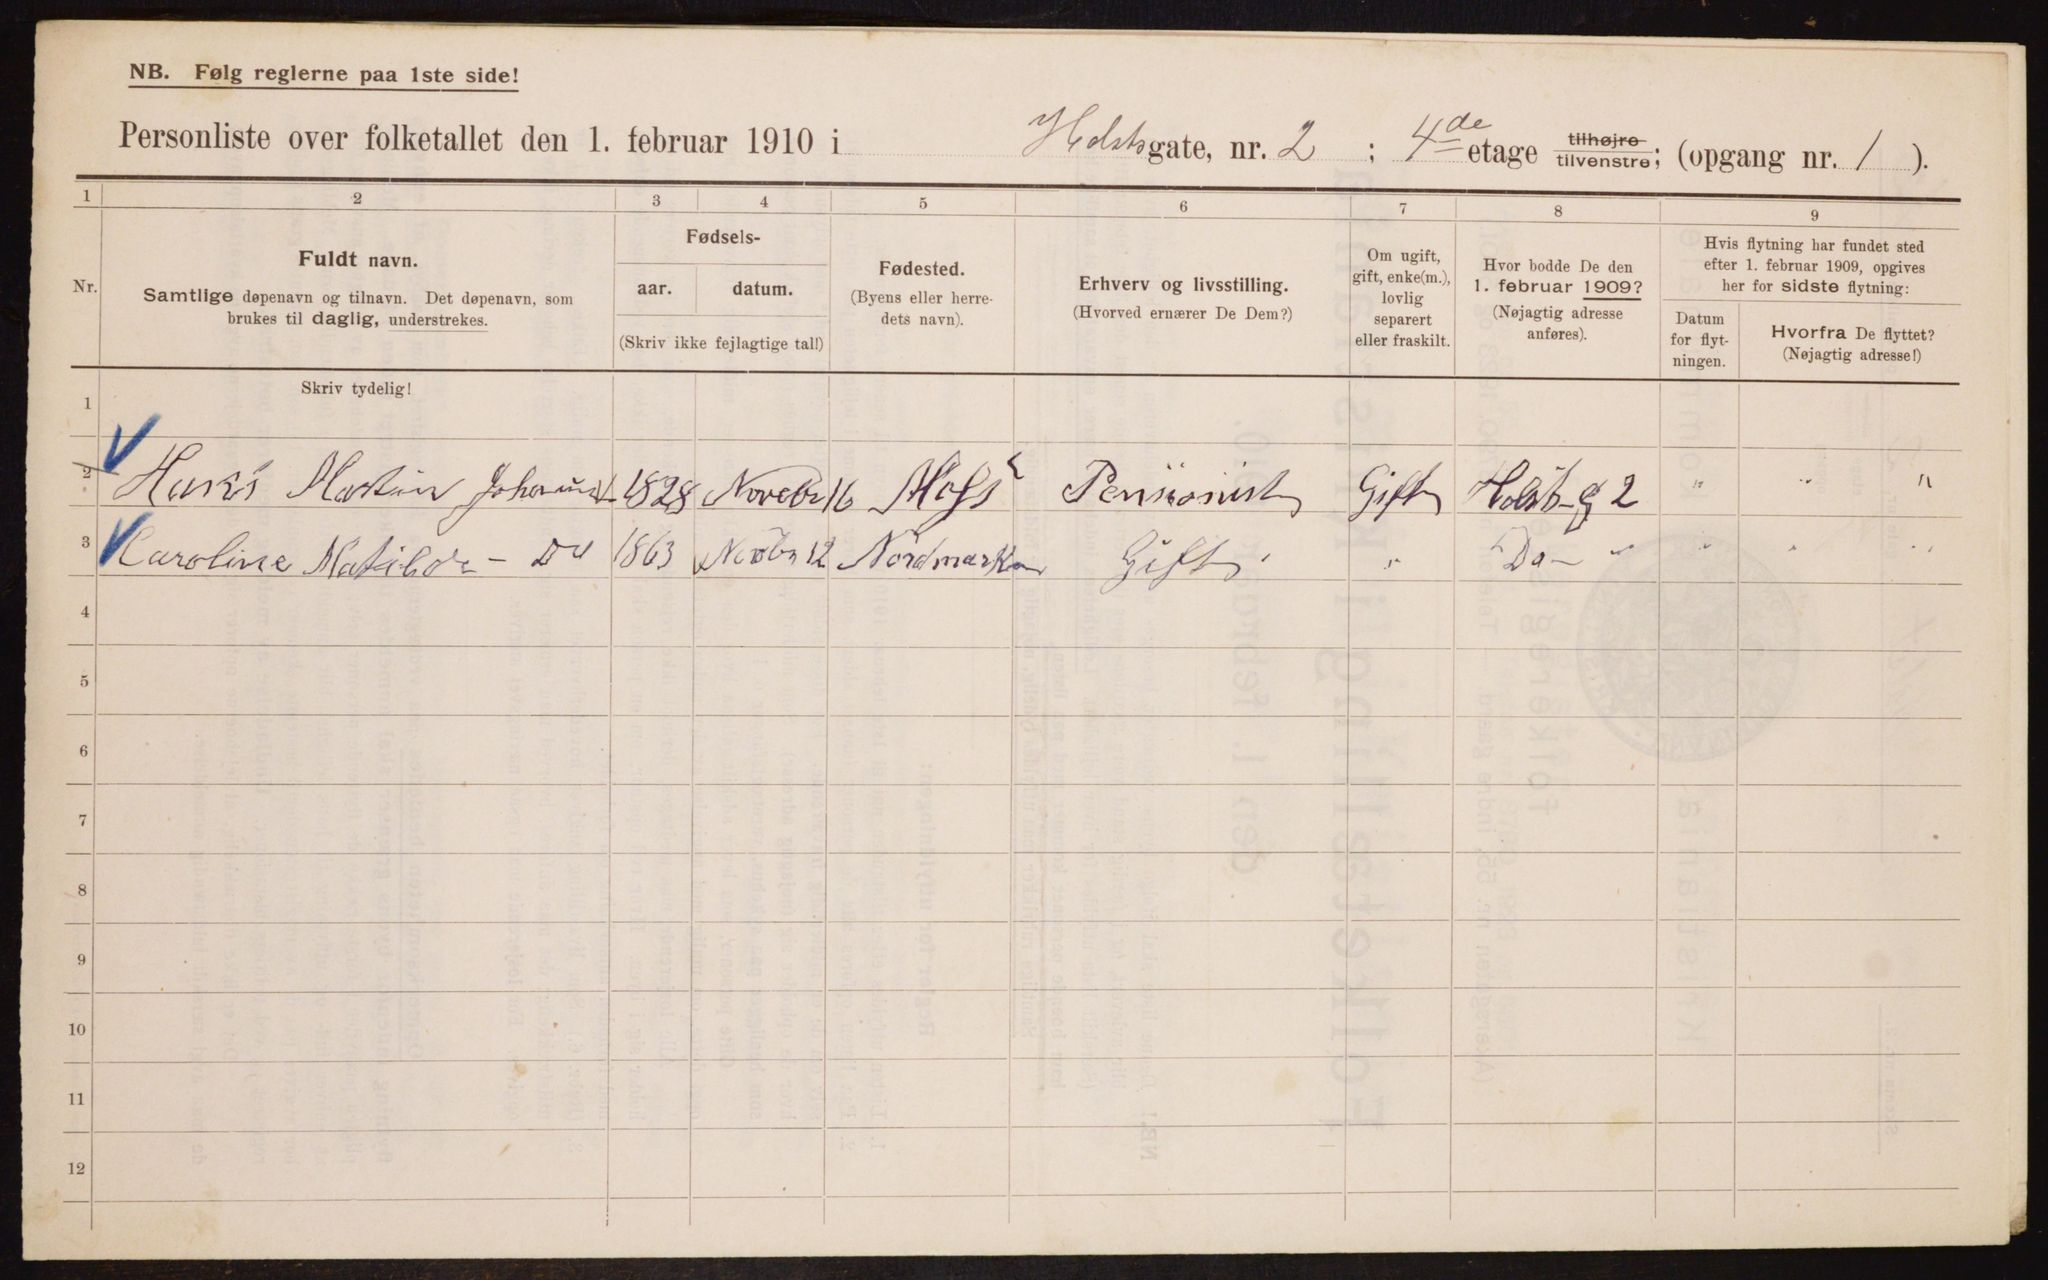 NB. Følg reglerne paa 1ste side!
Personliste over folketallet den 1. februar 1910 i Holstsgate, nr. 2 ; 4de etage tilhøjre tilvenstre; (opgang nr. 1 ).
1 2 3 4 5 6 7 8 9
Nr.
Fuldt navn.
Samtlige døpenavn og tilnavn. Det døpenavn, som
brukes til daglig, understrekes.
Fødsels-
aar. datum.
(Skriv ikke fejlagtige tal!)
Fødested.
(Byens eller herre-
dets navn).
Erhverv og livsstilling.
(Hvorved ernærer De Dem?)
Om ugift,
gift, enke(m.),
lovlig
separert
eller fraskilt.
Hvor bodde De den
1. februar 1909?
(Nøjagtig adresse
anføres).
Hvis flytning har fundet sted
efter 1. februar 1909, opgives
her for sidste flytning:
Datum
for flyt-
ningen.
Hvorfra De flyttet?
(Nøjagtig adresse!)
Skriv tydelig!
1
2 Hans Martin 1828 Novebr 16 Moss Pensionist Gift Holst-g 2 " " "
3 Caroline Matilde - Do 1863 Novbr 12 Nordmarken Gift " Do - " " " "
4
5
6
7
8
9
10
11
12